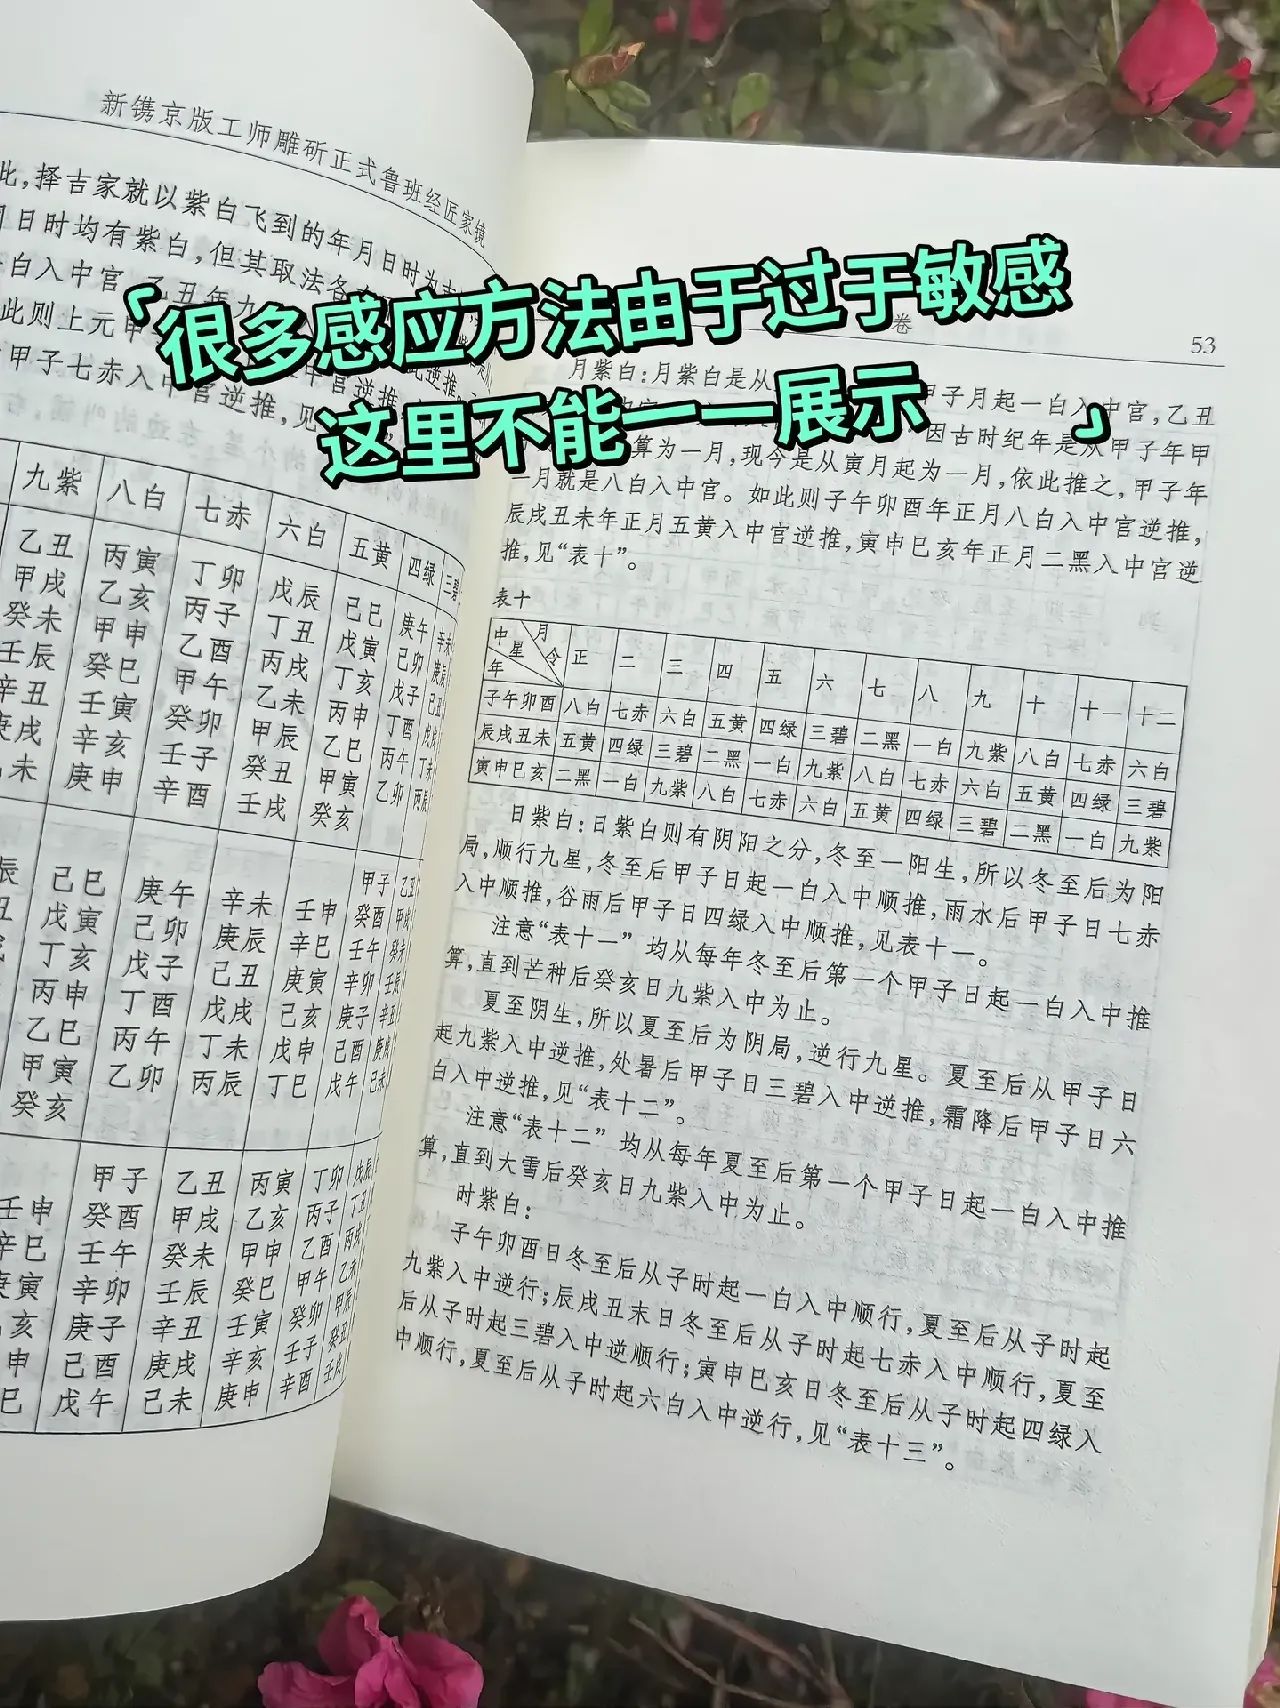 新镌京版工师雕斫正式鲁班经匠家镜
此,择吉家就以紫白飞到的年月日时为
日时均有紫白,但其取法各
白入中宫,乙丑年九
此则上元甲
甲子七赤入中宫逆推,见
「很多感应方法由于过于敏感
这里不能一一展示」
九紫 八白 七赤 六白 五黄 四绿 三碧
乙丑 丙寅 丁卯 戊辰 己巳 庚午 辛未
甲戌 乙亥 丙子 丁丑 戊寅 己卯 庚辰
癸未 甲申 乙酉 丙戌 丁亥 戊子 己丑
壬辰 癸巳 甲午 乙未 丙申 丁酉 戊戌
辛丑 壬寅 癸卯 甲辰 乙巳 丙午 丁未
庚戌 辛亥 壬子 癸丑 甲寅 乙卯 丙辰
未 庚申 辛酉 壬戌 癸亥
辰 己巳 庚午 辛未 壬申 甲子 乙丑
丑 戊寅 己卯 庚辰 辛巳 癸酉 甲戌
丁亥 戊子 己丑 庚寅 壬午 癸未
丙申 丁酉 戊戌 己亥 辛卯 壬辰
乙巳 丙午 丁未 戊申 庚子 辛丑
甲寅 乙卯 丙辰 丁巳 己酉 庚戌
癸亥 戊午 己未
壬申 甲子 乙丑 丙寅 丁卯 戊辰
辛巳 癸酉 甲戌 乙亥 丙子 丁丑
庚寅 壬午 癸未 甲申 乙酉 丙戌
亥 辛卯 壬辰 癸巳 甲午 乙未
申 庚子 辛丑 壬寅 癸卯 甲辰
巳 己酉 庚戌 辛亥 壬子 癸丑
戊午 己未 庚申 辛酉 壬戌
卷
53
月紫白:月紫白是从 甲子月起一白入中宫,乙丑
因古时纪年是从甲子年甲
算为一月,现今是从寅月起为一月,依此推之,甲子年
一月就是八白入中宫。如此则子午卯酉年正月八白入中宫逆推,
辰戌丑未年正月五黄入中宫逆推,寅申巳亥年正月二黑入中宫逆
推,见“表十”。
表十
中星 月令 年 正 二 三 四 五 六 七 八 九 十 十一 十二
子午卯酉 八白 七赤 六白 五黄 四绿 三碧 二黑 一白 九紫 八白 七赤 六白
辰戌丑未 五黄 四绿 三碧 二黑 一白 九紫 八白 七赤 六白 五黄 四绿 三碧
寅申巳亥 二黑 一白 九紫 八白 七赤 六白 五黄 四绿 三碧 二黑 一白 九紫
日紫白:日紫白则有阴阳之分,冬至一阳生,所以冬至后为阳
局,顺行九星,冬至后甲子日起一白入中顺推,雨水后甲子日七赤
入中顺推,谷雨后甲子日四绿入中顺推,见表十一。
注意“表十一” 均从每年冬至后第一个甲子日起一白入中推
算,直到芒种后癸亥日九紫入中为止。
夏至阴生,所以夏至后为阴局,逆行九星。夏至后从甲子日
起九紫入中逆推,处暑后甲子日三碧入中逆推,霜降后甲子日六
白入中逆推,见“表十二”。
注意“表十二” 均从每年夏至后第一个甲子日起一白入中推
算,直到大雪后癸亥日九紫入中为止。
时紫白:
子午卯酉日冬至后从子时起一白入中顺行,夏至后从子时起
九紫入中逆行;辰戌丑未日冬至后从子时起七赤入中顺行,夏至
后从子时起三碧入中逆顺行;寅申巳亥日冬至后从子时起四绿入
中顺行,夏至后从子时起六白入中逆行,见“表十三”。